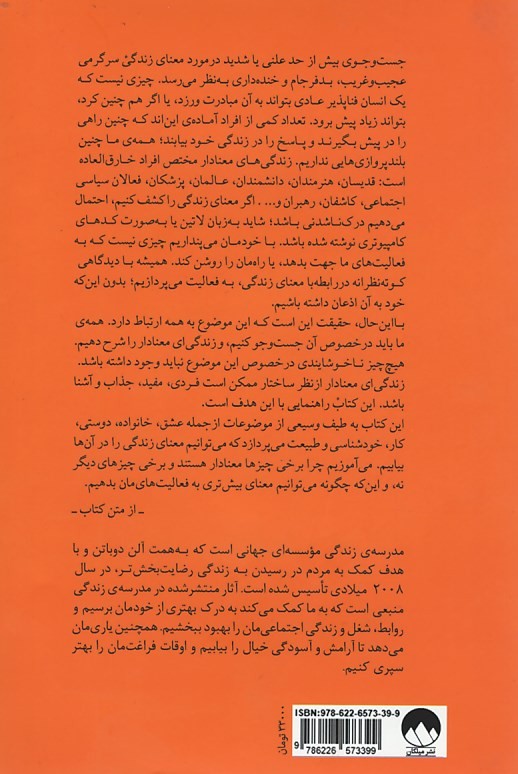 جست‌وجوی بیش از حد علنی یا شدید درمورد معنای زندگی سرگرمی
عجیب‌وغریب، بدفرجام و خنده‌داری به‌نظر می‌رسد. چیزی نیست که
یک انسان فناپذیر عادی بتواند به آن مبادرت ورزد، یا اگر هم چنین کرد،
بتواند زیاد پیش برود. تعداد کمی از افراد آماده‌ی این‌اند که چنین راهی
را در پیش بگیرند و پاسخ را در زندگی خود بیابند؛ همه‌ی ما چنین
بلندپروازی‌هایی نداریم. زندگی‌های معنادار مختص افراد خارق‌العاده
است: قدیسان، هنرمندان، دانشمندان، عالمان، پزشکان، فعالان سیاسی
اجتماعی، کاشفان، رهبران و... . اگر معنای زندگی را کشف کنیم، احتمال
می‌دهیم درک‌ناشدنی باشد؛ شاید به‌زبان لاتین یا به‌صورت کدهای
کامپیوتری نوشته شده باشد. با خودمان می‌پنداریم چیزی نیست که به
فعالیت‌های ما جهت بدهد، یا راه‌مان را روشن کند. همیشه با دیدگاهی
کوته‌نظرانه دررابطه‌با معنای زندگی، به فعالیت می‌پردازیم؛ بدون این‌که
خود به آن اذعان داشته باشیم.
بااین‌حال، حقیقت این است که این موضوع به همه ارتباط دارد. همه‌ی
ما باید درخصوص آن جست‌وجو کنیم، و زندگی‌ای معنادار را شرح دهیم.
هیچ‌چیز ناخوشایندی درخصوص این موضوع نباید وجود داشته باشد.
زندگی‌ای معنادار ازنظر ساختار ممکن است فردی، مفید، جذاب و آشنا
باشد. این کتاب راهنمایی با این هدف است.
این کتاب به طیف وسیعی از موضوعات ازجمله عشق، خانواده، دوستی،
کار، خودشناسی و طبیعت می‌پردازد که می‌توانیم معنای زندگی را در آن‌ها
بیابیم. می‌آموزیم چرا برخی چیزها معنادار هستند و برخی چیزهای دیگر
نه، و این‌که چگونه می‌توانیم معنای بیش‌تری به فعالیت‌های‌مان بدهیم.
ـ از متن کتاب ـ
مدرسه‌ی زندگی مؤسسه‌ای جهانی است که به‌همت آلن دوباتن و با
هدف کمک به مردم در رسیدن به زندگی رضایت‌بخش‌تر، در سال
۲۰۰۸ میلادی تأسیس شده است. آثار منتشرشده در مدرسه‌ی زندگی
منبعی است که به ما کمک می‌کند به درک بهتری از خودمان برسیم و
روابط، شغل و زندگی اجتماعی‌مان را بهبود ببخشیم. همچنین یاری‌مان
می‌دهد تا آرامش و آسودگی خیال را بیابیم و اوقات فراغت‌مان را بهتر
سپری کنیم.
ISBN: 978-622-6573-39-9
9 786226 573399
۳۲۰۰۰ تومان
نشر میلکان